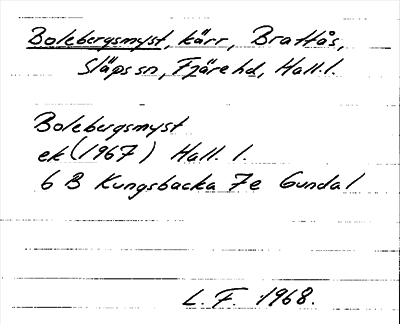 Bolebergsmyst, kärr, Brattås,
Släps sn, Fjäre hd, Hall. l.
Bolebergsmyst
ek (1967) Hall. l.
6 B Kungsbacka 7e Gundal
L. F. 1968.